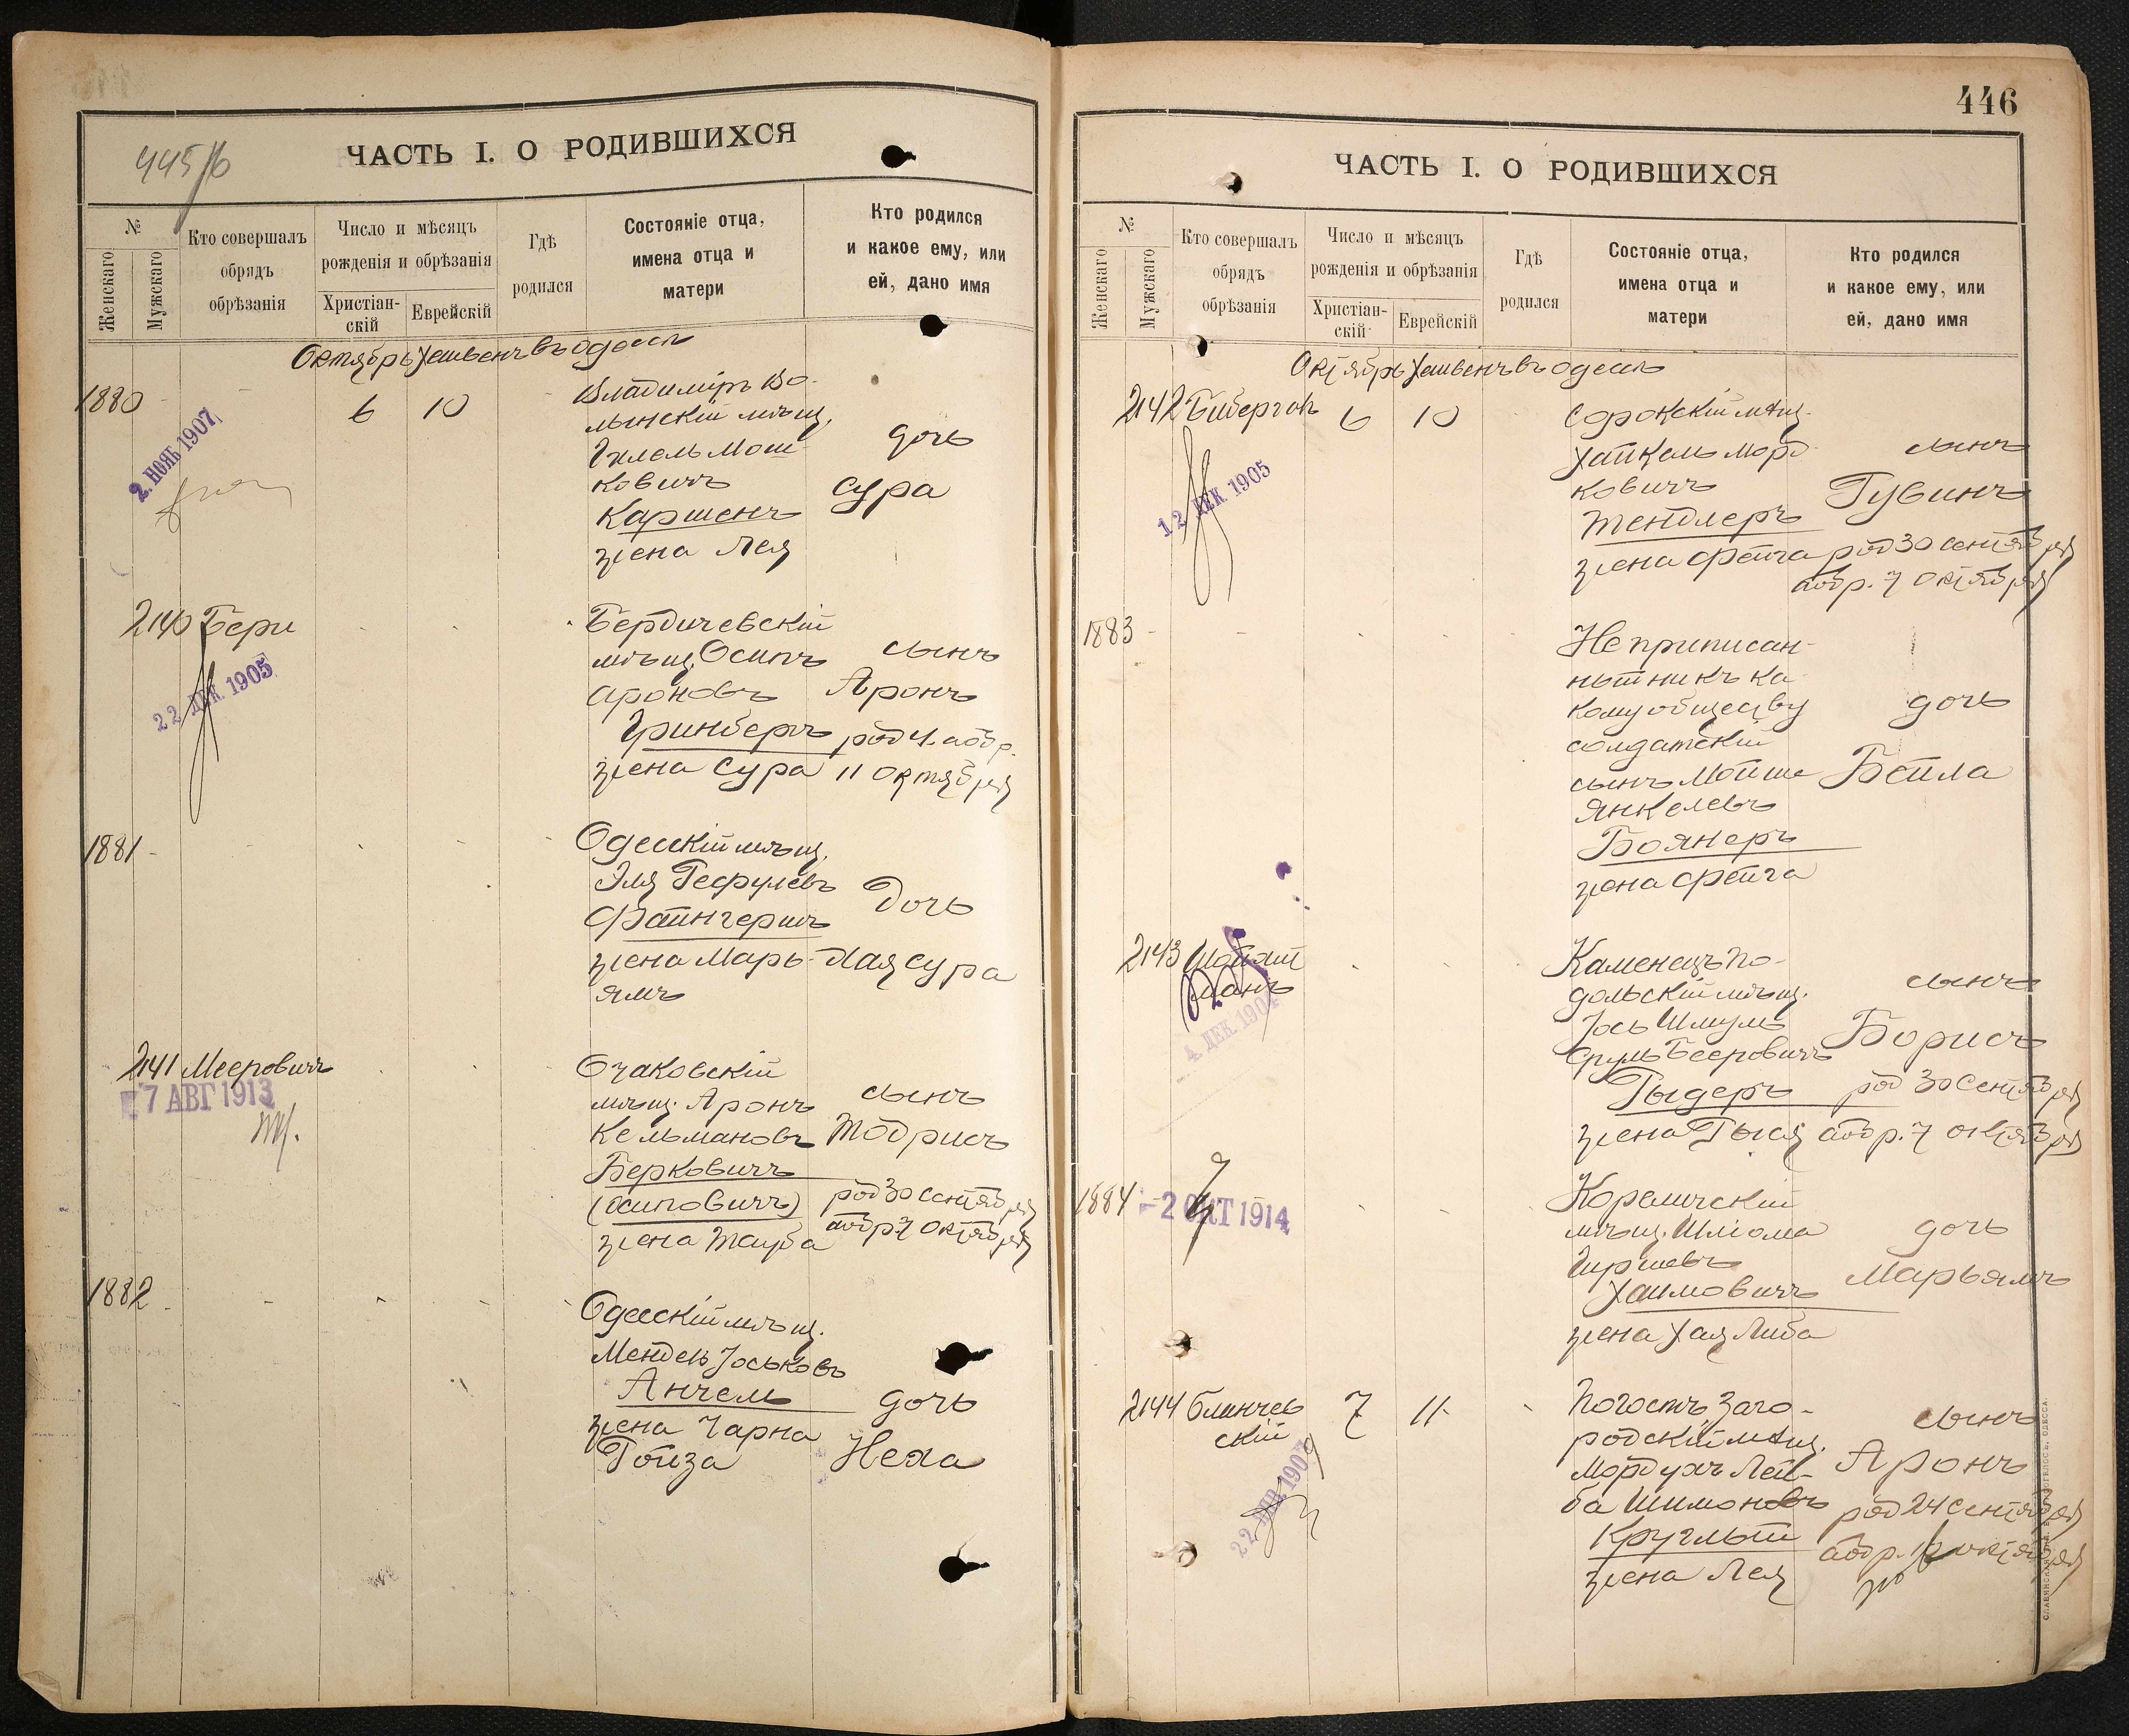 445/6
ЧАСТЬ I. О РОДИВШИХСЯ
№
Женскаго
Мужскаго
Кто совершалъ
обрядъ
обрѣзанія
Число и мѣсяцъ
рожденія и обрѣзанія
Христіан-
скій
Еврейскій
Гдѣ
родился
Состояніе отца,
имена отца и
матери
Кто родился
и какое ему, или
ей, дано имя
Октябрь Хешвенъ въ Одессѣ
1880
6 10
2. НОЯБ 1907
Владиміръ Во-
лынскій мѣщ.
Гилель Мош-
ковичъ
Каршенъ
жена Лея
дочь
Сура
2140 Бери
22 ДЕК. 1905
Бердичевскій
мѣщ. Осипъ
Ароновъ
Гринбергъ
жена Сура
сынъ
Аронъ
род 4. аобр.
11 октября
1881
Одесскій мѣщ.
Эля Гефулевъ
Файнгершъ
жена Марь-
ямъ
Дочь
Хая Сура
2141 Мееровичъ
7 АВГ 1913
Очаковскій
мѣщ. Аронъ
Кельмановъ
Берковичъ
(Осиповичъ)
жена Тауба
сынъ
Тодрисъ
род 30 сентября
аобр 7 октября
1882
Одесскій мѣщ.
Мендель Іоськовъ
Анчель
жена Чарна
Гойза
дочь
Неха
446
ЧАСТЬ I. О РОДИВШИХСЯ
№
Женскаго
Мужскаго
Кто совершалъ
обрядъ
обрѣзанія
Число и мѣсяцъ
рожденія и обрѣзанія
Христіан-
скій
Еврейскій
Гдѣ
родился
Состояніе отца,
имена отца и
матери
Кто родился
и какое ему, или
ей, дано имя
Октябрь Хешвенъ въ Одессѣ
2142 Бибергал
6 10
12 ДЕК. 1905
Сорокскій мѣщ.
Хайкель Морд-
ковичъ
Тендлеръ
жена Фейга
сынъ
Рувинъ
род 30 сентября
аобр. 7 октября
1883
Не приписан-
ный ни къ ка-
кому обществу
солдатскій
сынъ Мойше
Янкелевъ
Боянеръ
жена Фейга
дочь
Бейла
2143 Шойхат
манъ
4. ДЕК. 1904
Каменецъ По-
дольскій мѣщ.
Іось Шмуль
Сруль Бееровичъ
Гыдеръ
жена Гыся
сынъ
Борисъ
род 30 сентября
аобр. 7 октября
1884
-2 ОКТ 1914
Корелическій
мѣщ. Шліома
Гиршевъ
Хаимовичъ
жена Хая Либа
дочь
Марьямъ
2144 Блинчев
скій
7 11
Погостъ Заго-
родскій мѣщ.
Мордухъ Лей-
ба Шимоновъ
Круглый
жена Лея
сынъ
Аронъ
род 24 сентября
аобр. октября